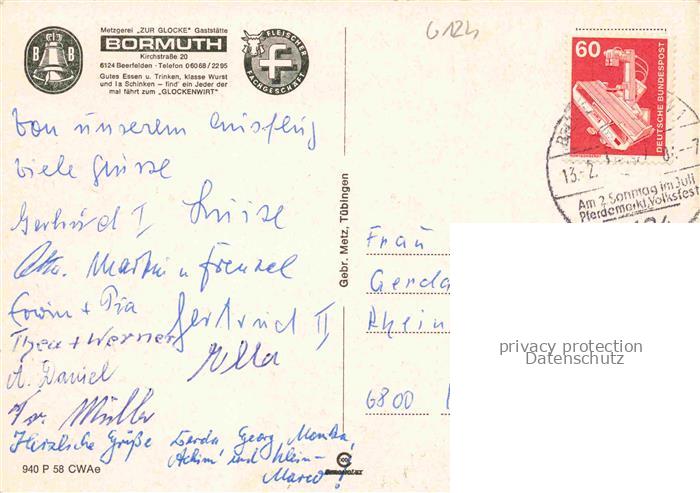 Metzgerei „ZUR GLOCKE" Gaststätte
BORMUTH
Kirchstraße 20
6124 Beerfelden · Telefon 06068/2295
Gutes Essen u. Trinken, klasse Wurst
und Ia Schinken – find' ein Jeder der
mal fährt zum „GLOCKENWIRT"
B B
FLEISCHER
FACHGESCHÄFT
6124
60
DEUTSCHE BUNDESPOST
13.-2.
Am 2. Sonntag im Juli
Pferdemarkt, Volksfest
Von unserem Ausflug
viele Grüsse
Gerhard I Luise
Martin u Frenzel
Erwin + Pia
Gertrud II
Thea + Werner
Ella
A. Daniel
Müller
Herzliche Grüße Gerda Georg, Monika,
Achim und Klein-
Marco!
Gebr. Metz, Tübingen
Frau
Gerda
Rhein
6800
privacy protection
Datenschutz
940 P 58 CWAe